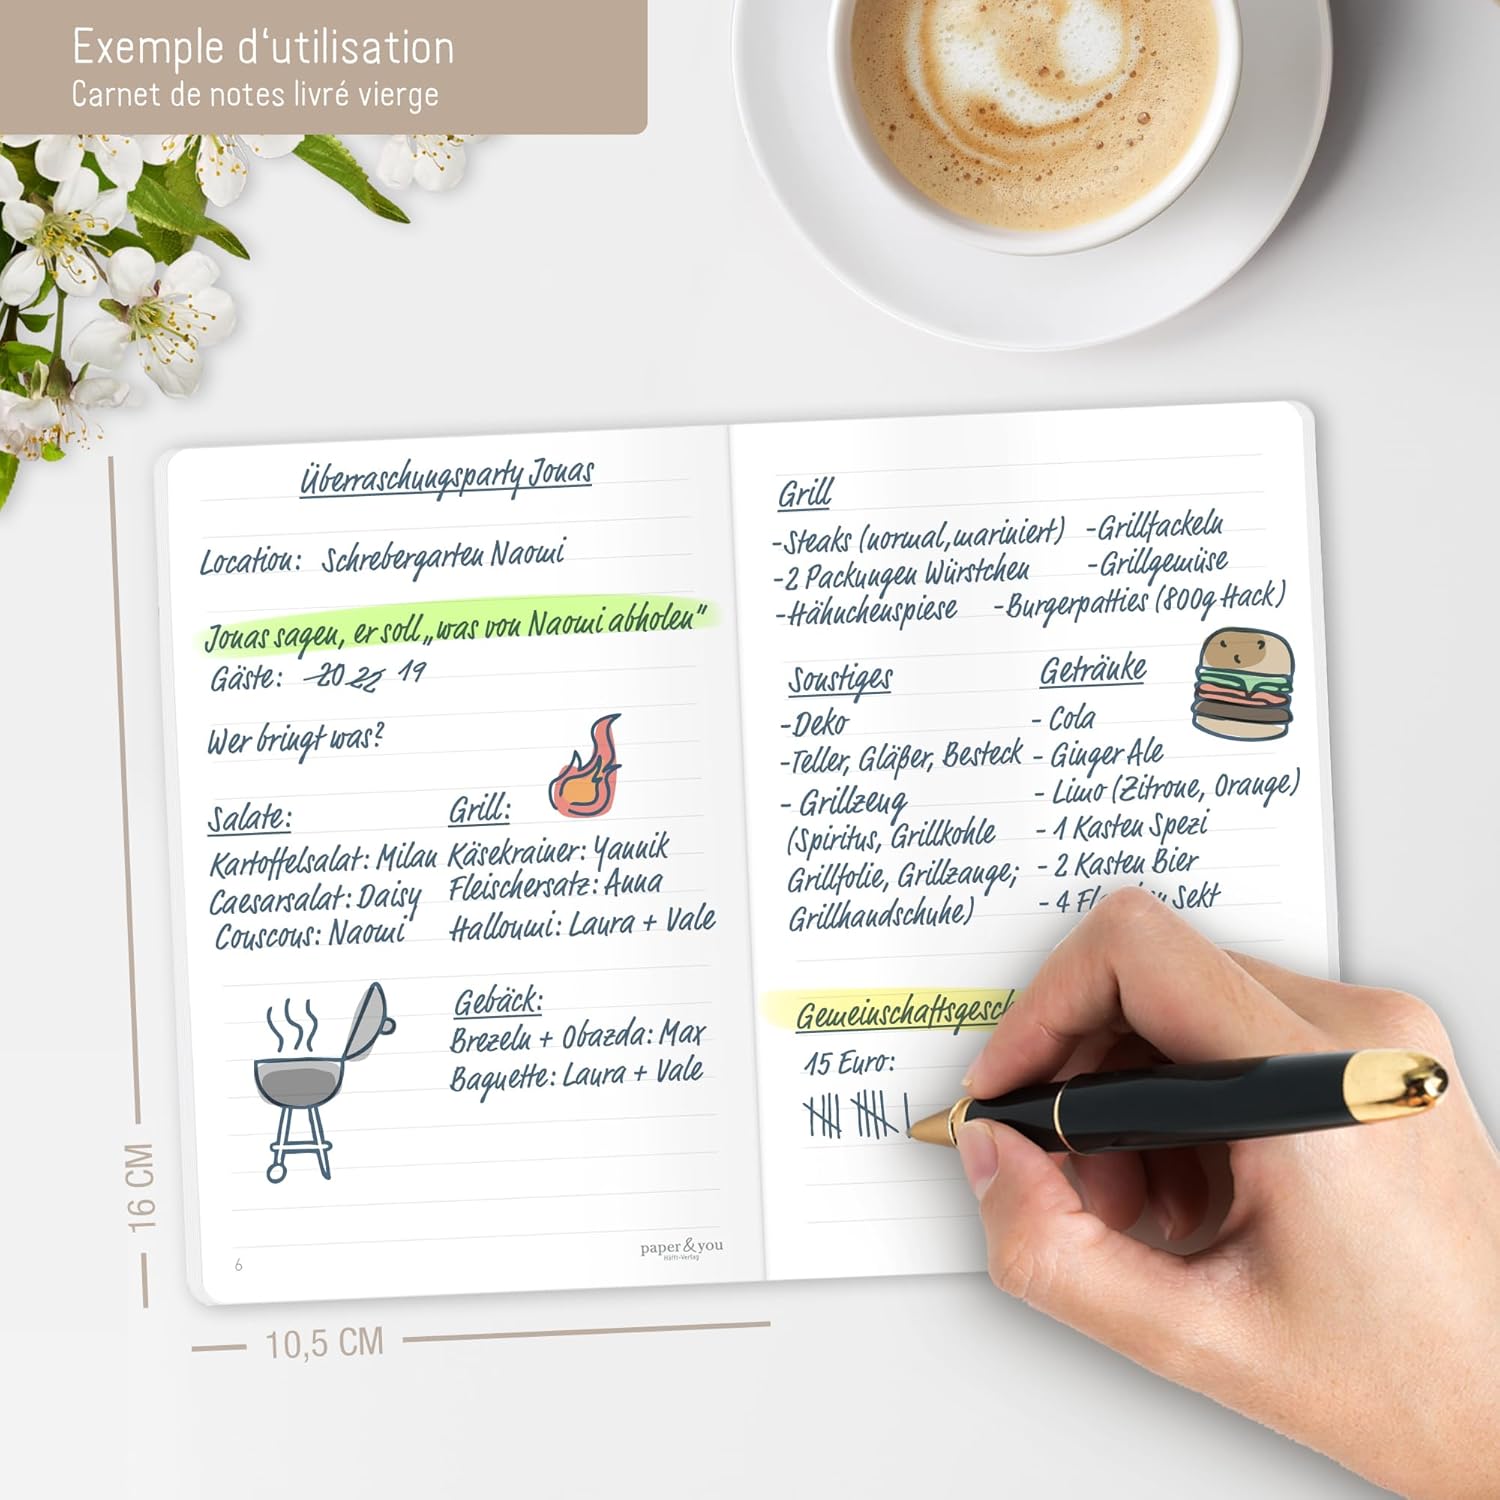 Exemple d‘utilisation
Carnet de notes livré vierge
Überraschungsparty Jonas
Location: Schrebergarten Naomi
Jonas sagen, er soll „was von Naomi abholen“
Gäste: 20 22 19
Wer bringt was?
Salate:
Kartoffelsalat: Milan
Caesarsalat: Daisy
Couscous: Naomi
Grill:
Käsekrainer: Yannik
Fleischersatz: Anna
Halloumi: Laura + Vale
Gebäck:
Brezeln + Obazda: Max
Baguette: Laura + Vale
6
paper & you
Häfft-Verlag
Grill
-Steaks (normal, mariniert)
-2 Packungen Würstchen
-Hähnchenspiese
-Grillfackeln
-Grillgemüse
-Burgerpatties (800g Hack)
Sonstiges
-Deko
-Teller, Gläßer, Besteck
- Grillzeug
(Spiritus, Grillkohle
Grillfolie, Grillzange;
Grillhandschuhe)
Getränke
- Cola
- Ginger Ale
- Limo (Zitrone, Orange)
- 1 Kasten Spezi
- 2 Kasten Bier
- 4 Sekt
15 Euro:
16 CM
10,5 CM